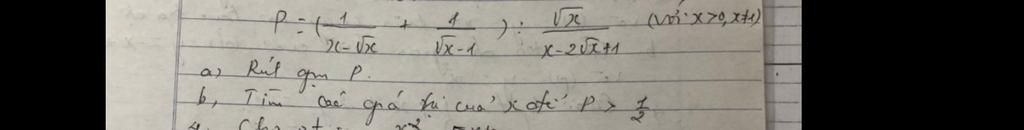 P = ( 1/(x-√x) + 1/(√x-1) ) : √x/(x-2√x+1) (với x>0, x≠1)
a) Rút gọn P.
b, Tìm các giá trị của x để P > 1/2